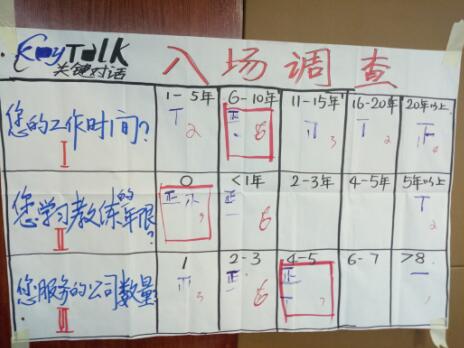 KeyTalk
关键对话
入场调查
1-5年 6-10年 11-15年 16-20年 20年以上
您的工作时间?
I
2 6 3 2
0 <1年 2-3年 4-5年 5年以上
您学习教练的年限?
II
正 正 6
1 2-3 4-5 6-7 >8
您服务的公司数量
III
3 正 6 正 7 一